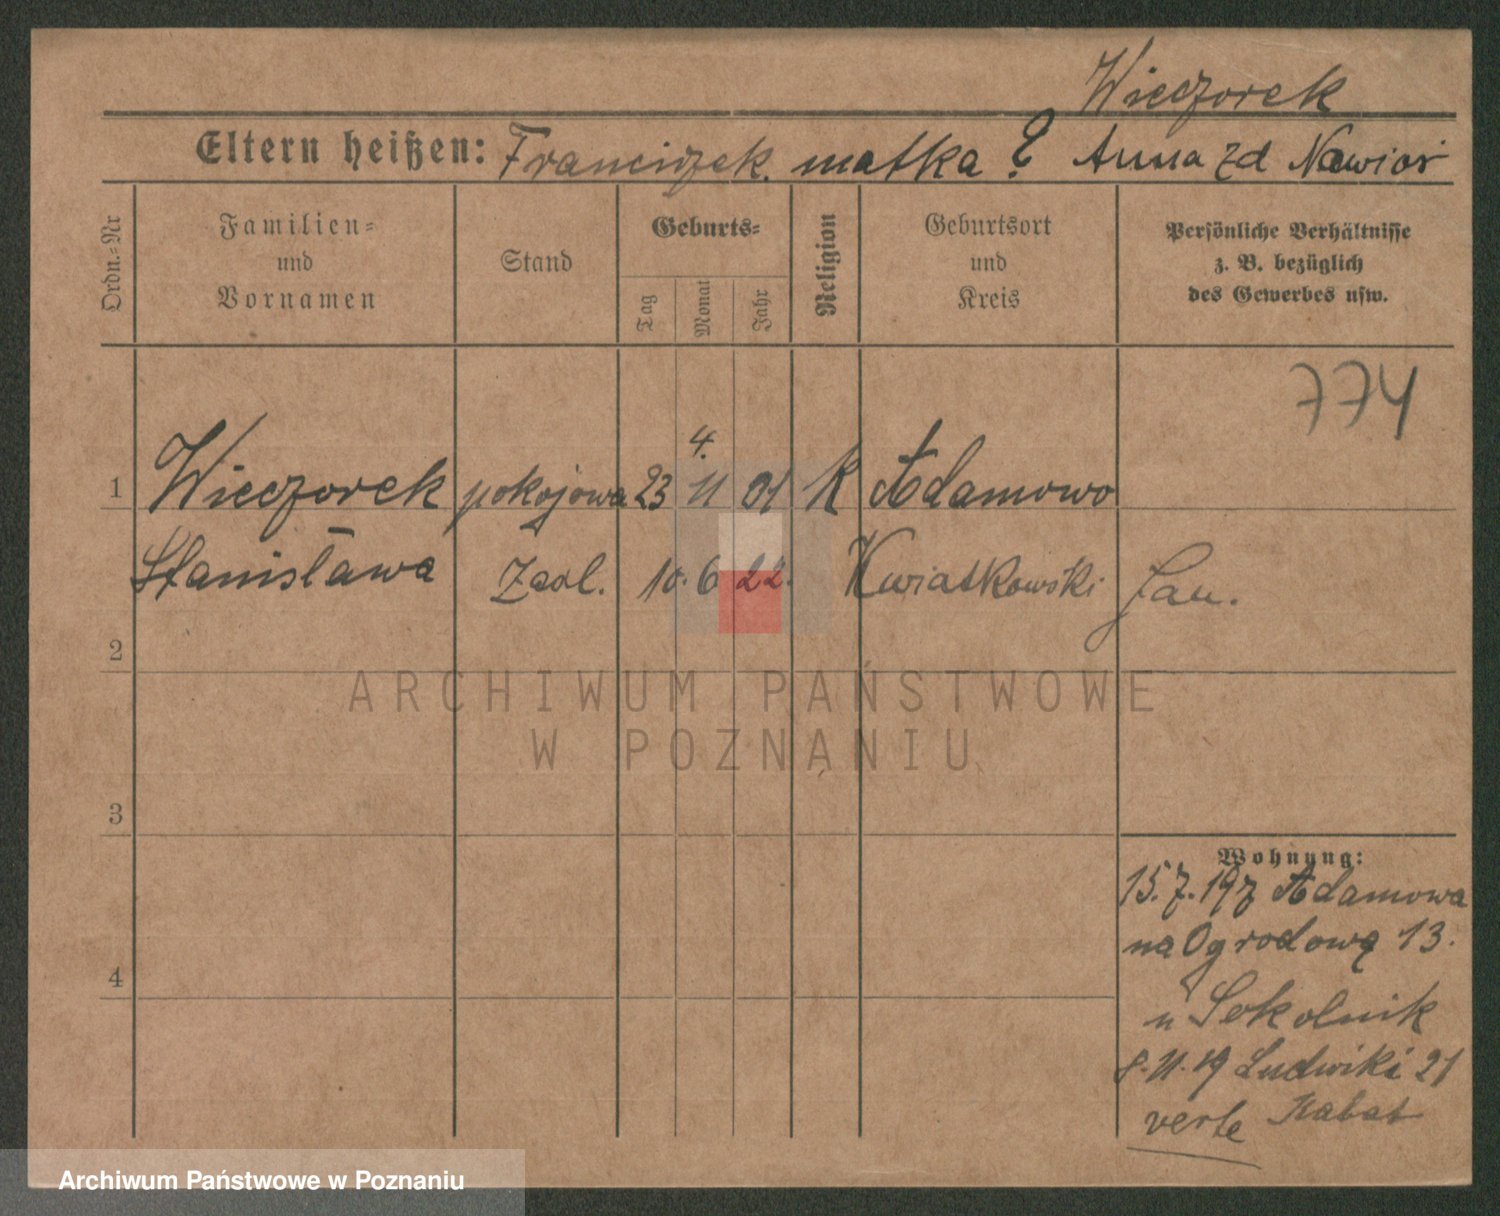 Wieczorek
Eltern heißen: Franciszek. matka ? Anna zd Nawior
Ordn.-Nr
Familien-
und
Vornamen
Stand
Geburts-
Tag
Monat
Jahr
Religion
Geburtsort
und
Kreis
Persönliche Verhältnisse
z. B. bezüglich
des Gewerbes usw.
774
4.
1 Wieczorek pokojowa 23 11 01 R Adamowo
Stanisława 10. 6 22. Kwiatkowski Jan.
2
3
4
Wohnung:
15.7.19 z Adamowa
na Ogrodową 13.
u Sokolnik
8.11.19 Ludwiki 21
verte Kabat
ARCHIWUM PAŃSTWOWE
W POZNANIU
Archiwum Państwowe w Poznaniu